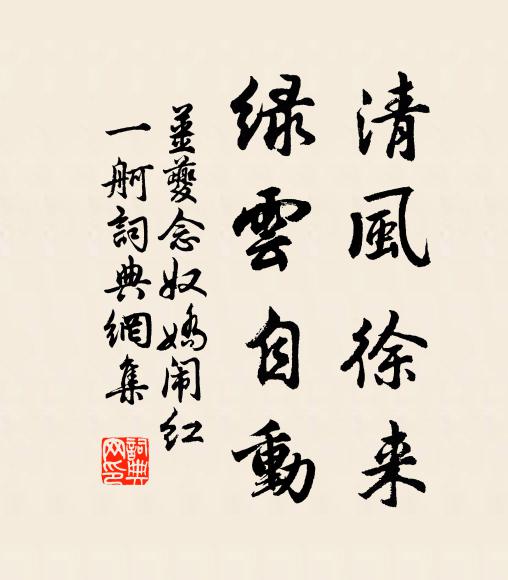 清風徐来
綠雲自動
姜夔念奴嬌闹红
一舸詞典網集
詞典
网印